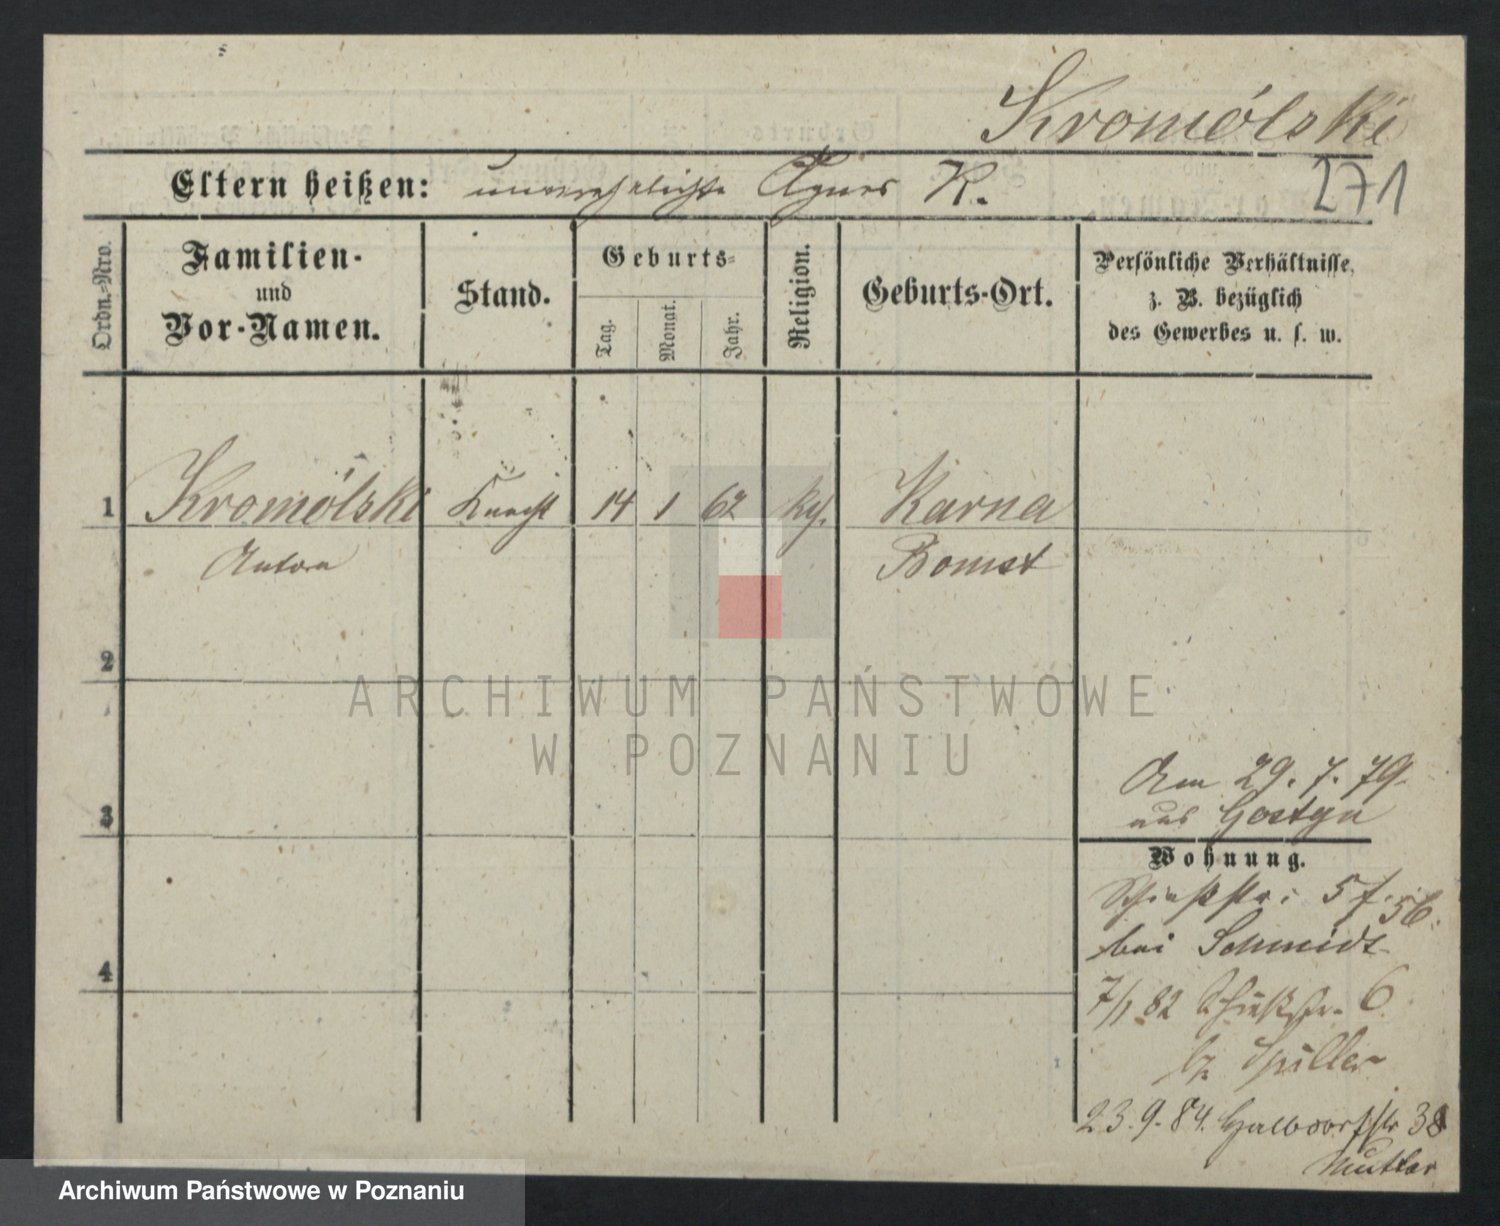 Kromólski
Eltern heißen: unverehelichte Agnes K.
271
Ordn.-Nro.
Familien-
und
Vor-Namen.
Stand.
Geburts-
Tag.
Monat.
Jahr.
Religion.
Geburts-Ort.
Persönliche Verhältnisse,
z. B. bezüglich
des Gewerbes u. s. w.
1 Kromólski Knecht 14 1 62 Karna
Anton Bomst
2
ARCHIWUM PAŃSTWOWE
W POZNANIU
3
Am 29. 7. 79.
aus Gostyn
Wohnung.
Schießstr: 5 f. 56.
bei Schmidt
4
7/1 82 Schießstr. 6
b. Spiller
23. 9. 84. Halbdorfstr 38
Mutter
Archiwum Państwowe w Poznaniu